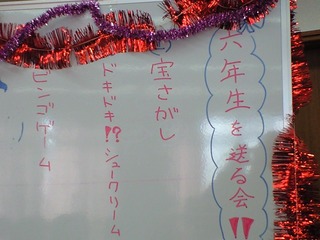 六年生を送る会!!
宝さがし
ドキドキ!?シュークリーム
ビンゴゲーム